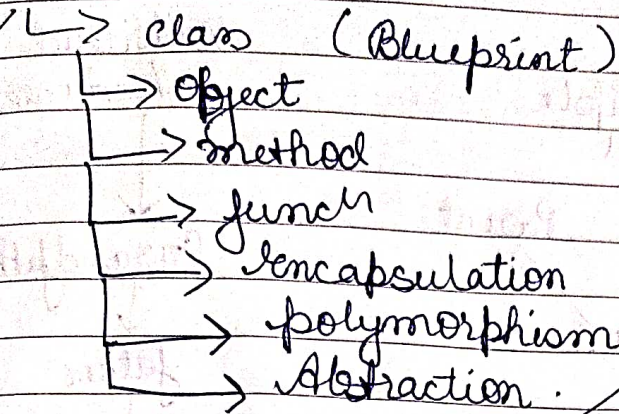 class (Blueprint)
object
method
funcn
encapsulation
polymorphism
Abstraction.